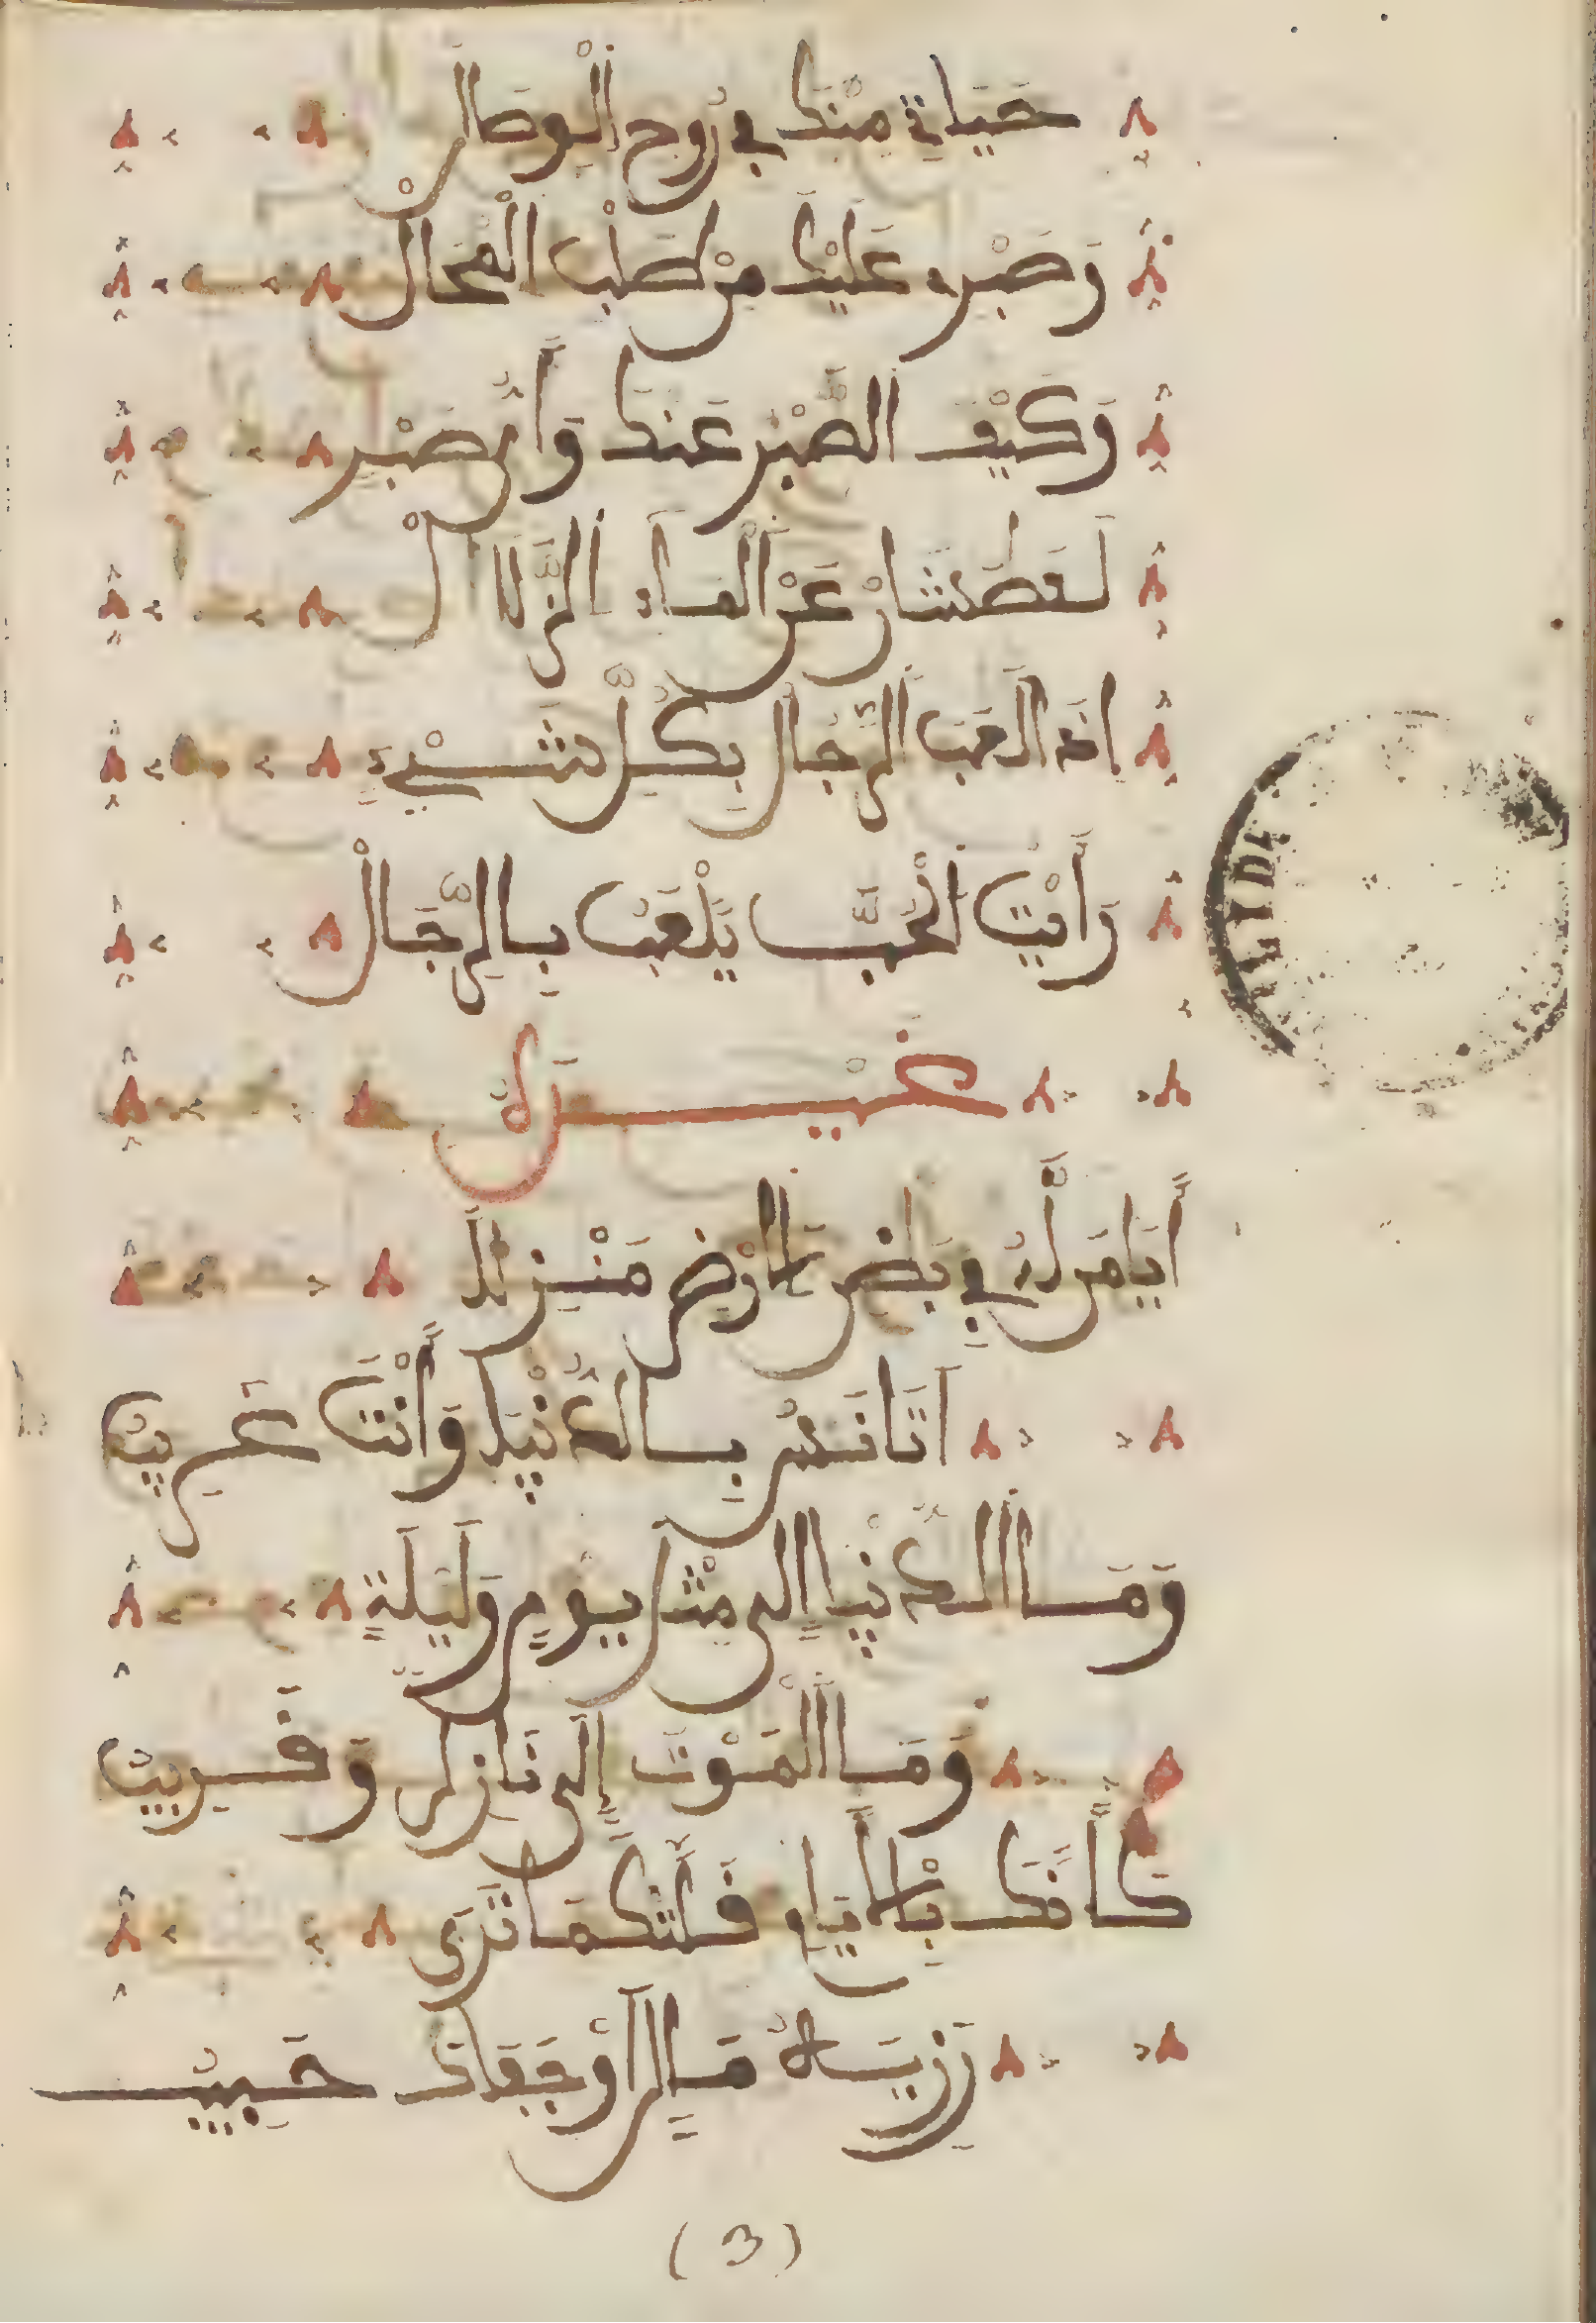 حَيَاتِي مِنْكَ فِي رُوحِ الْوِصَالْ
وَصَبْرِي عَلَيْكَ مِنْ طَلْبِ الْمُحَالْ
وَكَيْفَ الصَّبْرُ عَنْكَ وَأَيُّ صَبْرٍ
لَعَطْشَانْ عَنْ الْمَاءِ الزُّلَالْ
اذَا لَعِبَ الرِّجَالُ بِكُلِّ شَيْءٍ
رَأَيْتُ الْحُبَّ يَلْعَبُ بِالرِّجَالْ
غَيْرُهُ
أَيَا مَنْ لَهُ فِي بَاطِنِ الارْضِ مَنْزِلًا
اتَانَسُ بِالدُّنْيَا وَأَنْتَ غَرِيبُ
وَمَا الدُّنْيَا إِلَى مِثْلُ يَوْمٍ وَلَيْلَةٍ
وَمَا الْمَوْتُ إِلَى نَازِلٌ وَقَرِيبُ
كَأَنَّكَ بِالأَيَّامِ قَلَّتْ كَمَا تَرَى
حَبِيبُ
(3)